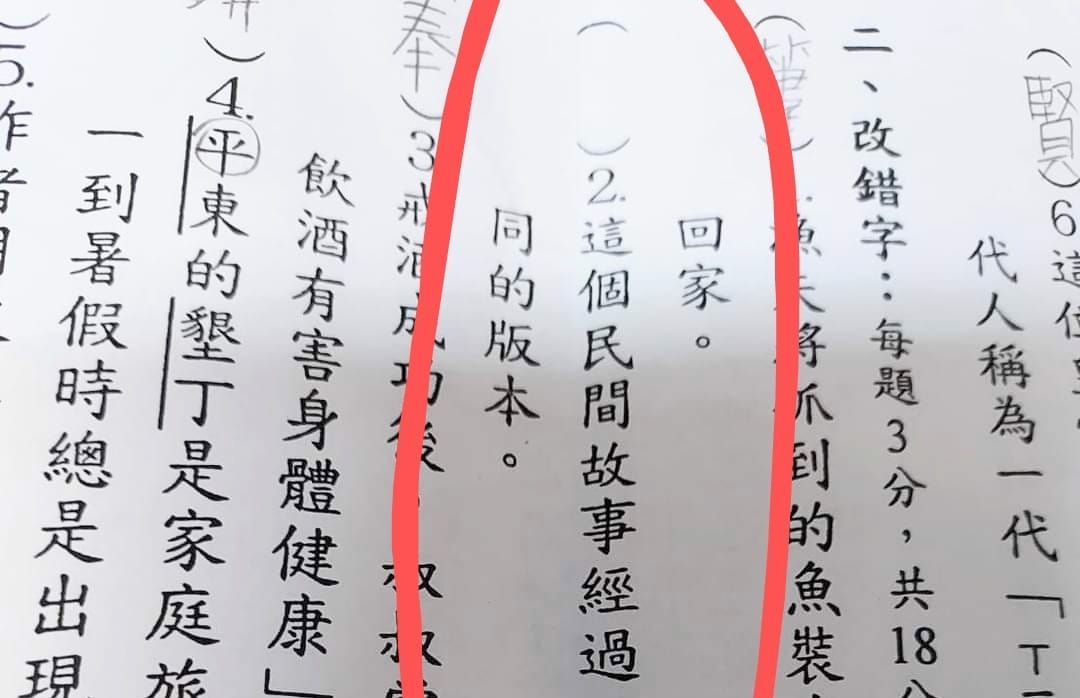 (賢)6.這位
代人稱為一代「
二、改錯字：每題3分，共18
漁夫將抓到的魚裝
回家。
( )2.這個民間故事經過
同的版本。
(奉)3.戒酒成功後，叔叔常
飲酒有害身體健康」
)4.平東的墾丁是家庭旅
一到暑假時總是出現
)5.作者